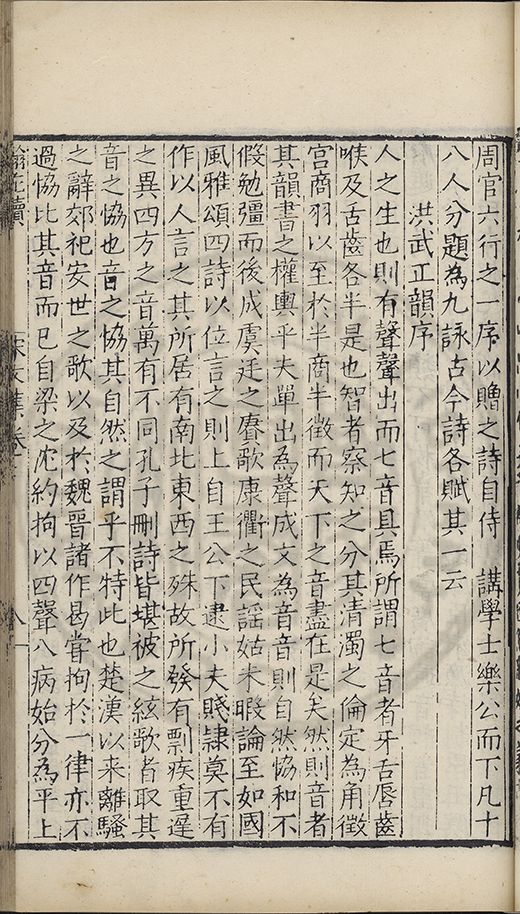 周官六行之一序以贈之詩自侍　講學士樂公而下凡十
八人分題為九詠古今詩各賦其一云
洪武正韻序
人之生也則有聲聲出而七音具焉所謂七音者牙舌唇齒
喉及舌齒各半是也智者察知之分其清濁之倫定為角徵
宮商羽以至於半商半徵而天下之音盡在是矣然則音者
其韻書之權輿乎夫單出為聲成文為音音則自然協和不
假勉彊而後成虞廷之賡歌康衢之民謡姑未暇論至如國
風雅頌四詩以位言之則上自王公下逮小夫賤隸莫不有
作以人言之其所居有南北東西之殊故所發有剽疾重遲
之異四方之音萬有不同孔子刪詩皆堪被之絃歌者取其
音之協也音之協其自然之謂乎不特此也楚漢以来離騷
之辭郊祀安世之歌以及於魏晉諸作曷嘗拘於一律亦不
過協比其音而已自梁之沈約拘以四聲八病始分為平上